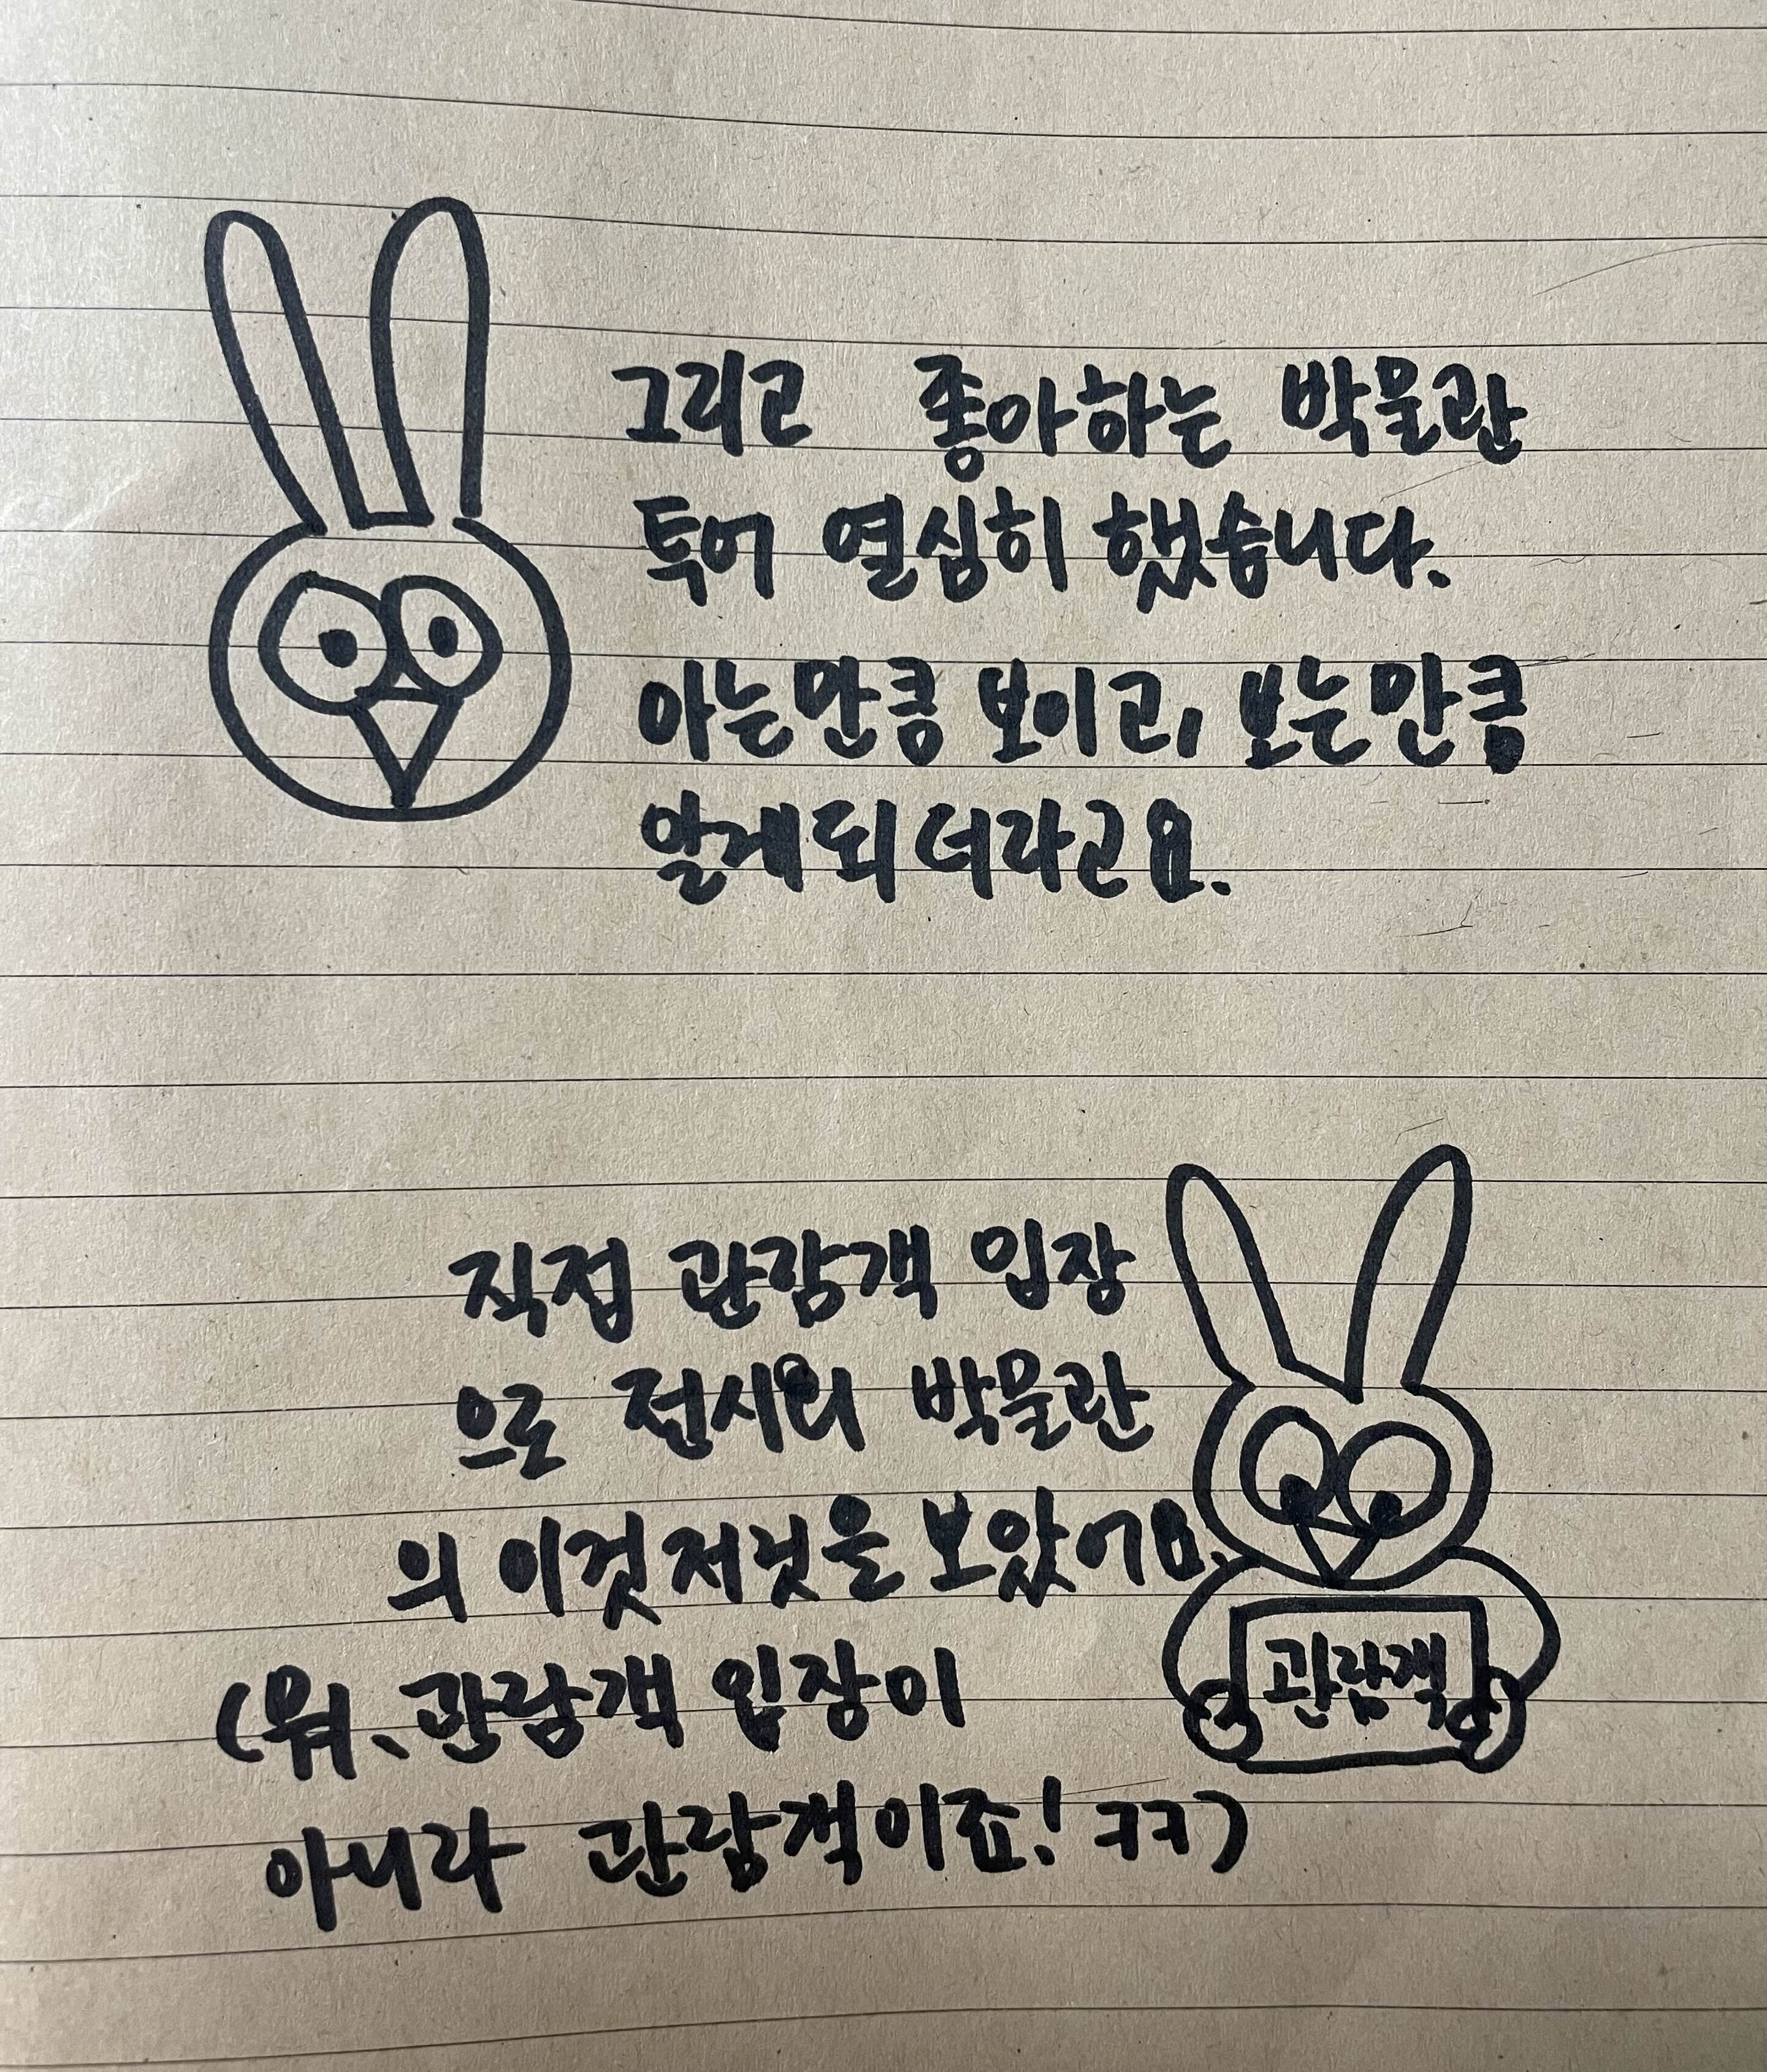 그리고 좋아하는 박물관
투어 열심히 했습니다.
아는만큼 보이고, 보는만큼
알게되더라고요.
직접 관람객 입장
으로 전시와 박물관
의 이것저것을 보았어요.
(뭐, 관람객 입장이
아니라 관람객이죠! ㅋㅋ)
관람객